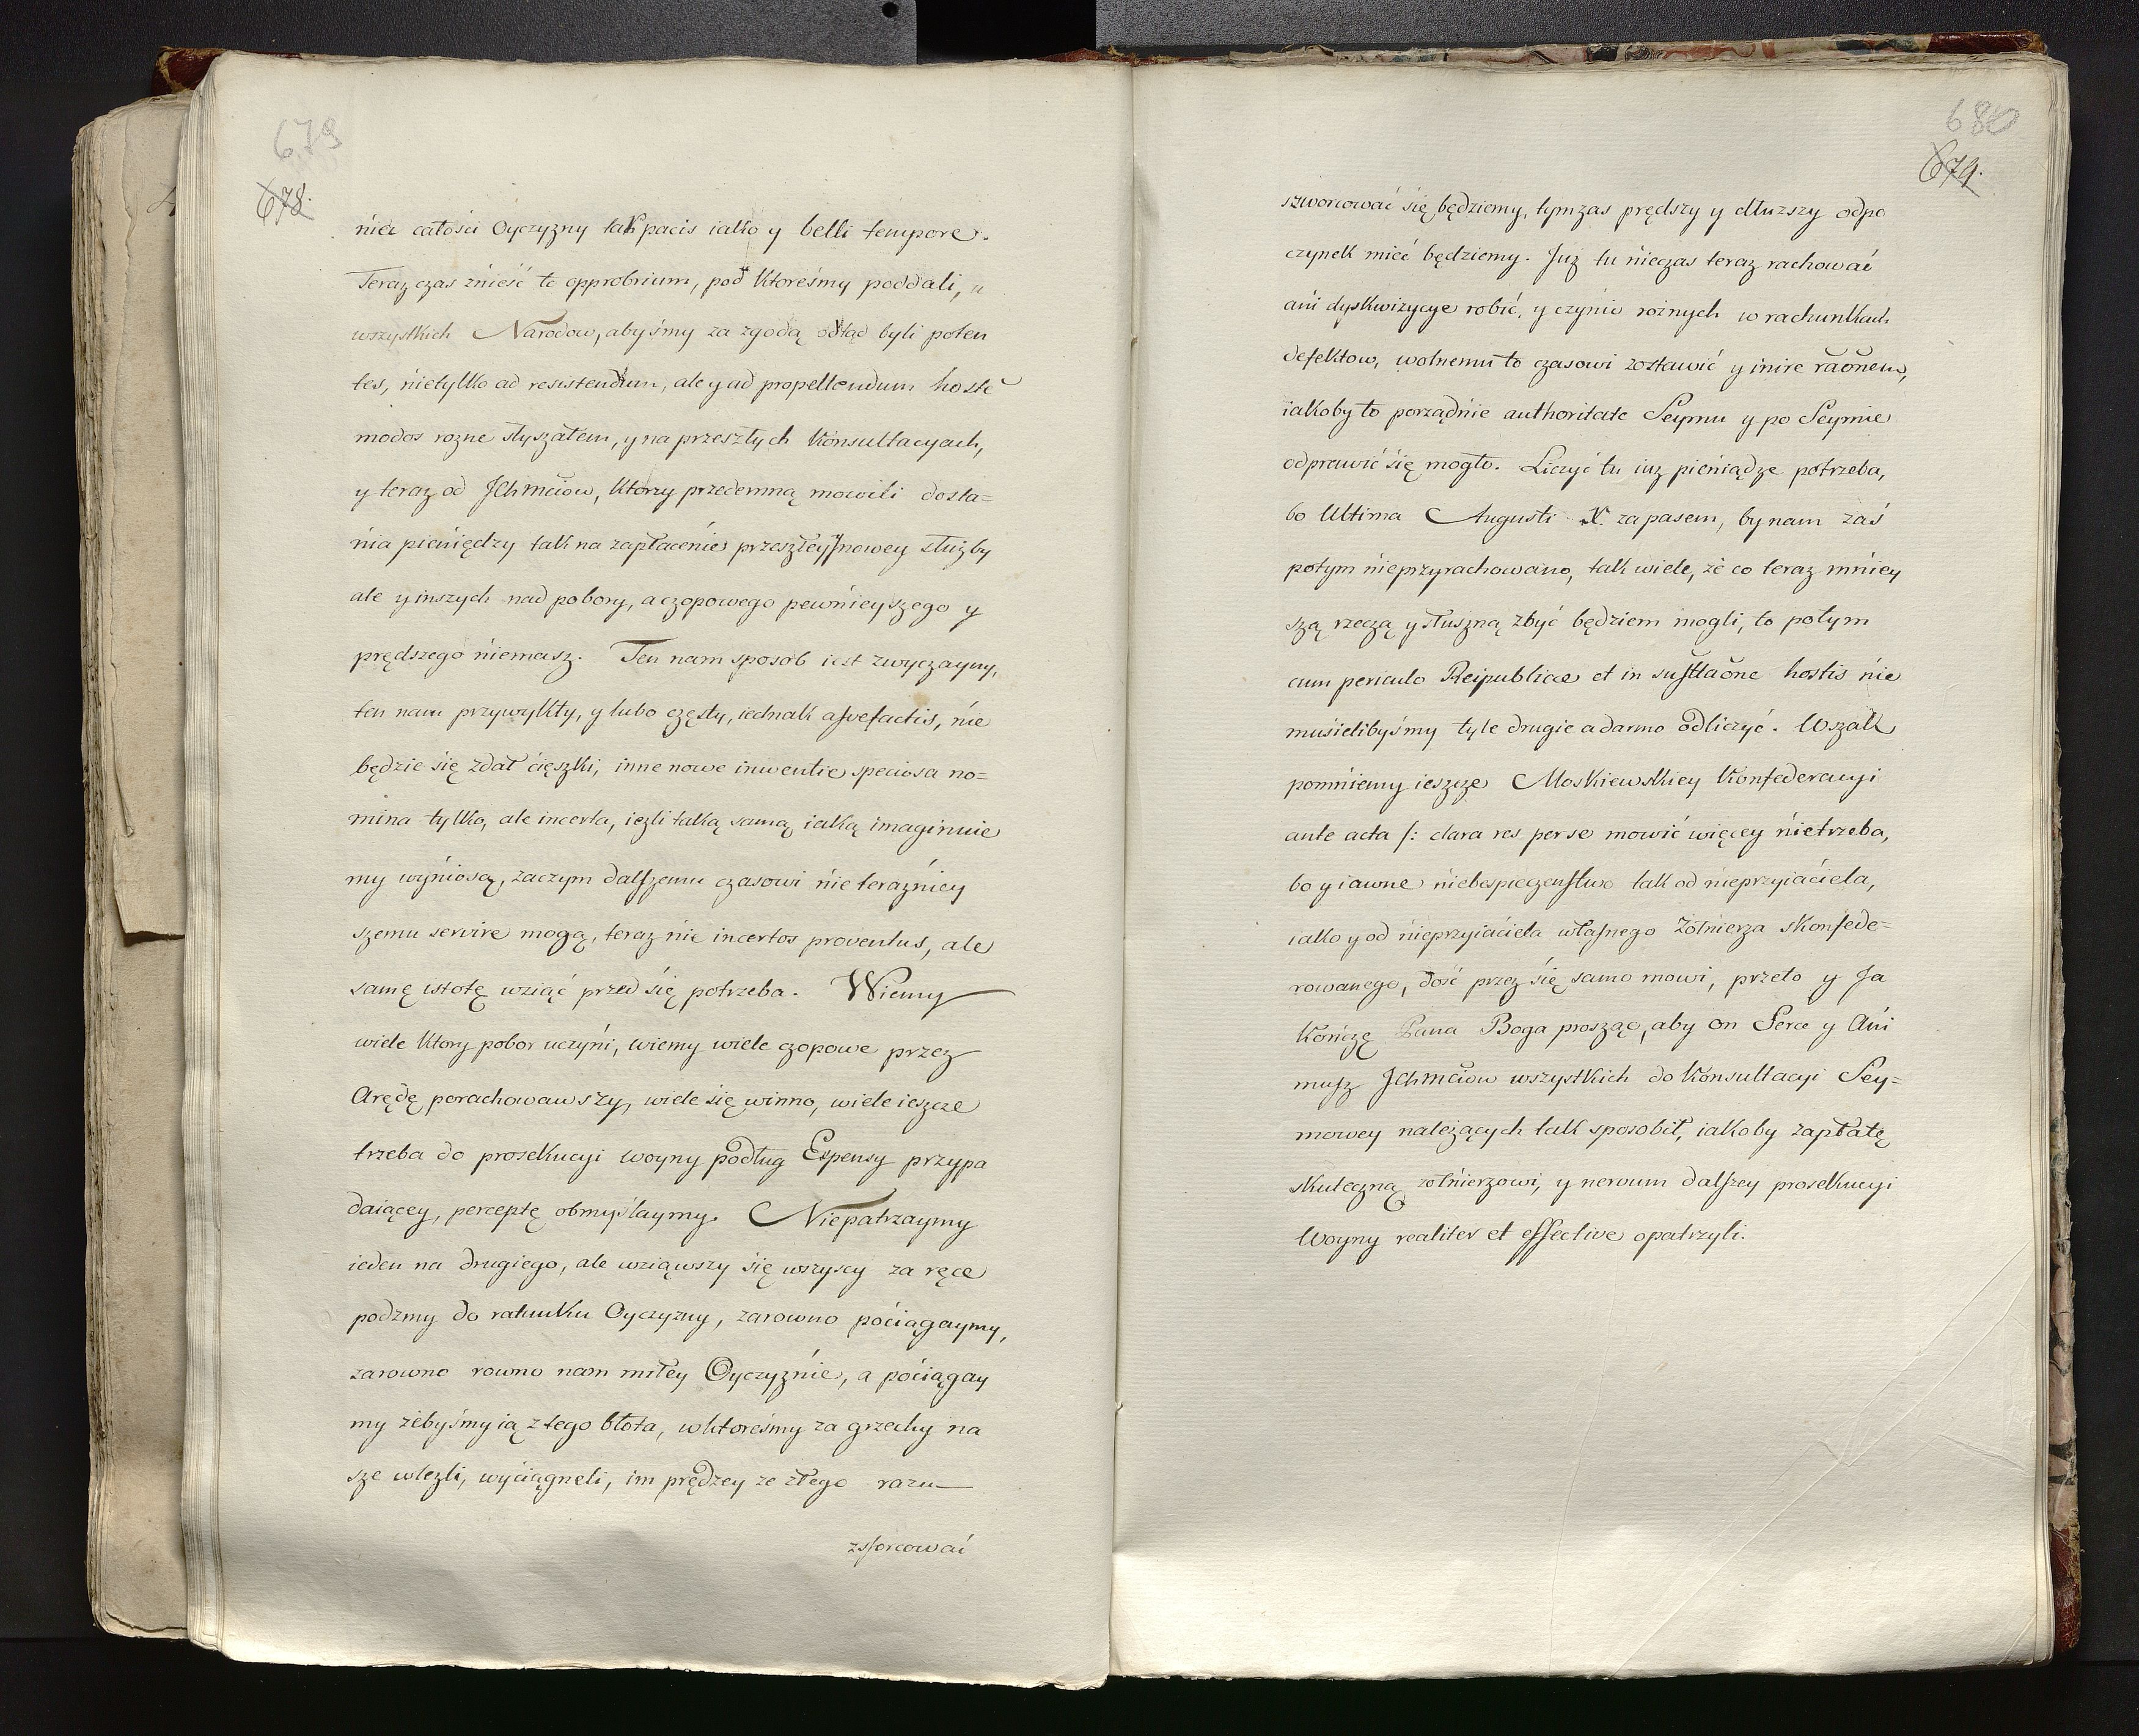 679
678.
nier całości Oyczyzny tak pacis iako y belli tempore.
Teraz czas znieść to opprobrium, pod ktoreśmy poddali, u
wszystkich Narodow, abyśmy za zgodą odtąd byli poten
tes, nietylko ad resistendum, ale y ad propellendum hostē
modos rozne słyszałem, y na przeszłych konsultacyach,
y teraz od Ichmciow, ktorzy przedemną mowili dosta=
nia pieniędzy tak na zapłacenie przeszłey y nowey służby
ale y inszych nad pobory, a czopowego pewnieyszego y
prędszego niemasz. Ten nam sposob iest zwyczayny,
ten nam przywykły, y lubo częsty, iednak assvefactis, nie
będzie się zdał cięszki, inne nowe inwentie speciosa no=
mina tylko, ale incerta, iezli taką samą iaką imaginuie
my wyniosą, zaczym dalszemu czasowi nie teraźniey
szemu servire mogą, teraz nie incertos proventus, ale
samę istotę wziąć przed się potrzeba. Wiemy
wiele ktory pobor uczyni, wiemy wiele czopowe przez
Arędę porachowawszy, wiele się winno, wiele ieszcze
trzeba do prosekucyi woyny podług Expensy przypa
daiącey, perceptę obmyślaymy. Niepatrzaymy
ieden na drugiego, ale wziąwszy się wszyscy za ręce
podzmy do ratunku Oyczyzny, zarowno pociągaymy,
zarowno rowno nam miłey Oyczyznie, a pociągay
my żebyśmy ią z tego błota, w ktoreśmy za grzechy na
sze wlezli, wyciągneli, im prędzey ze złego razu
zsforcować
680
679.
szworcować się będziemy, tymzas prędszy y dłuzszy odpo
czynek mieć będziemy. Juz tu nieczas teraz rachować
ani dyskwizycye robić, y czynić rożnych w rachunkach
defektow, wolnemu to czasowi zostawić y inire rãõnem,
iakoby to porządnie authoritate Seymu y po Seymie
odprawić się mogło. Liczyć tu iuz pieniądze potrzeba,
bo Ultima Augusti za pasem, by nam zaś
potym nieprzyrachowano, tak wiele, że co teraz mniey
szą rzeczą y słuszną zbyć będziem mogli, to potym
cum periculo Reipublicae et in sustłaõne hostis nie
musielibyśmy tyle drugie adarmo odliczyć. Wszak
pomniemy ieszcze Moskiewskiey Konfederacyi
ante acta /: clara res per se mowić więcey nietrzeba,
bo y iawne niebespieczenstwo tak od nieprzyiaciela,
iako y od nieprzyiaciela własnego żołnierza skonfede=
rowanego, dość przez się samo mowi, przeto y Ja
Kończę Pana Boga prosząc, aby on Serce y Ani
musz Ichmciow wszystkich do Konsultacyi Sey=
mowey należących tak sposobił, iakoby zapłatę
skuteczną zołnierzowi, y nervum dalszey prosekucyi
Woyny realiter et effective opatrzyli.